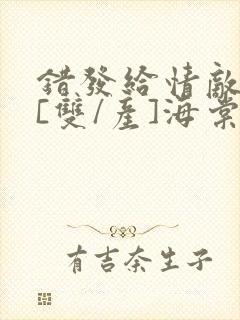 錯發給情敵
[雙/產]海棠
有吉奈生子